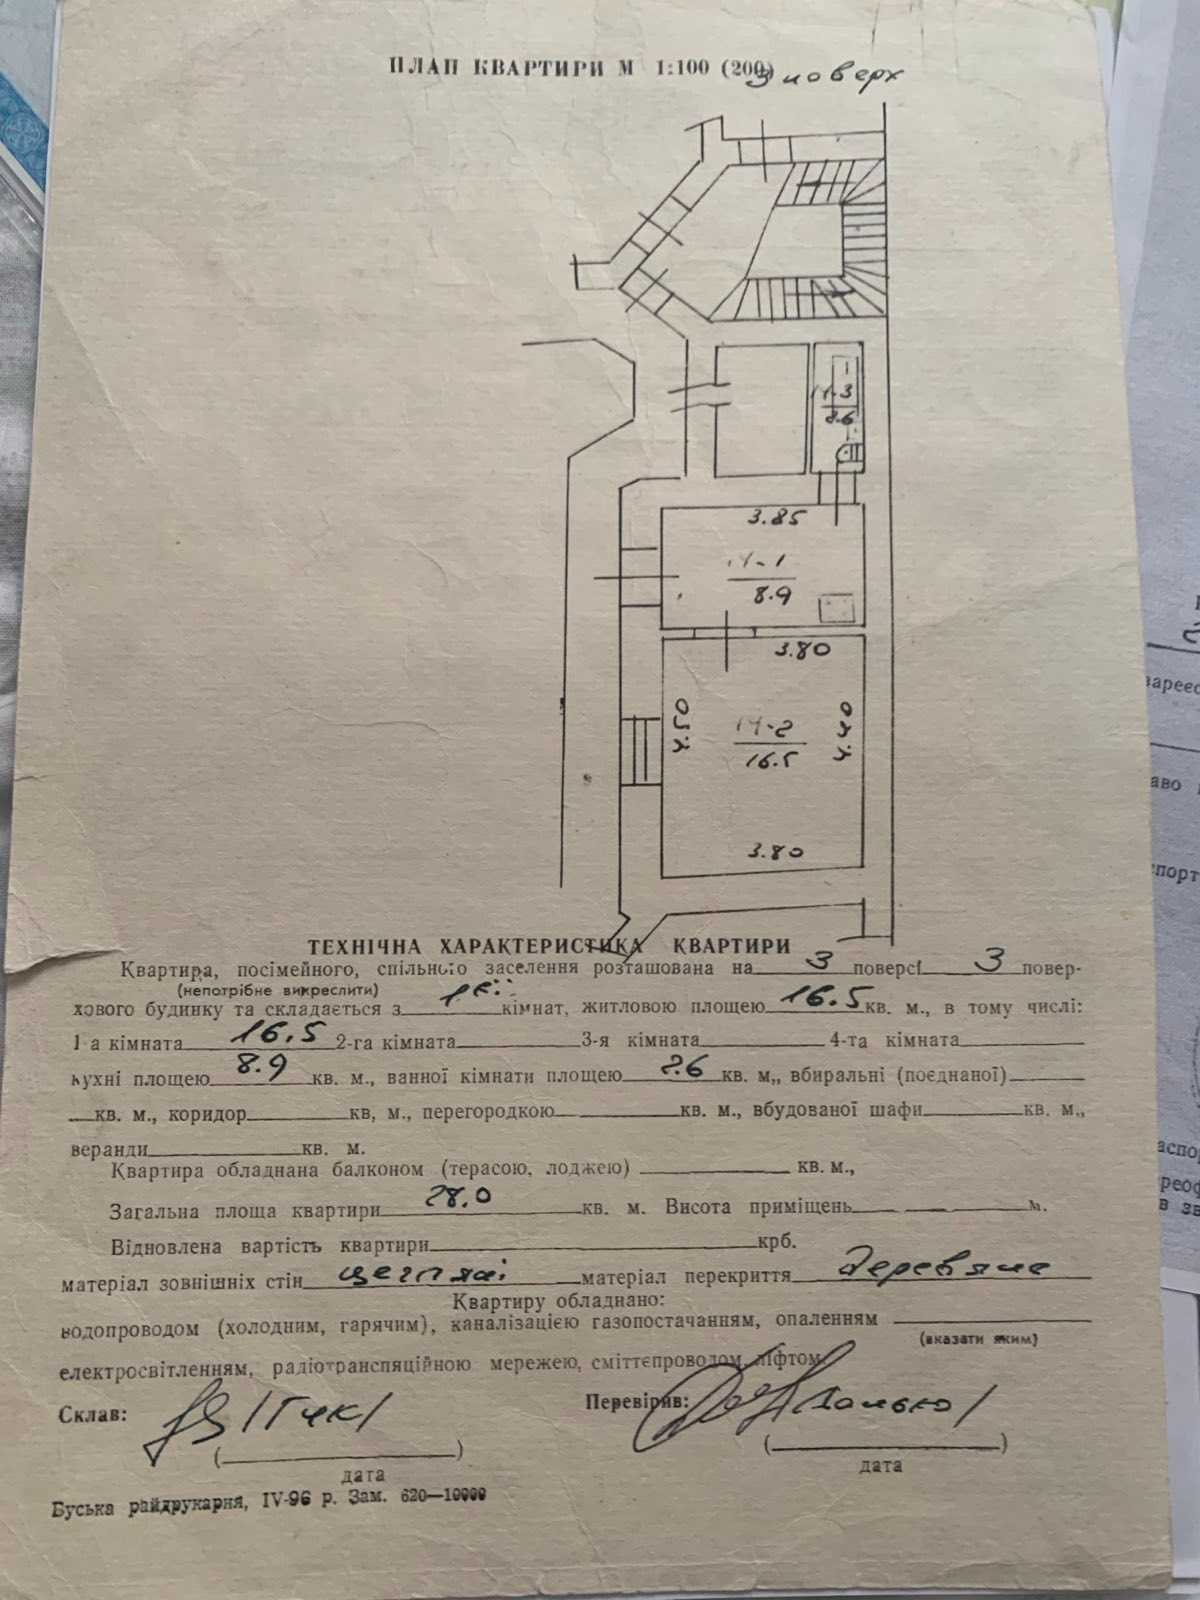 ПЛАН КВАРТИРИ М 1:100 (200)
3 поверх
14-3
2.6
3.85
14-1
8.9
3.80
4.50
14-2
16.5
4.40
3.80
ТЕХНІЧНА ХАРАКТЕРИСТИКА КВАРТИРИ
Квартира, посімейного, спільного заселення розташована на 3 поверсі 3 повер-
(непотрібне викреслити)
хового будинку та складається з 1єї кімнат, житловою площею 16.5 кв. м., в тому числі:
1-а кімната 16.5 2-га кімната 3-я кімната 4-та кімната
кухні площею 8.9 кв. м., ванної кімнати площею 2.6 кв. м,, вбиральні (поєднаної)
кв. м., коридор кв, м., перегородкою кв. м., вбудованої шафи кв. м.,
веранди кв. м.
Квартира обладнана балконом (терасою, лоджею) кв. м.,
Загальна площа квартири 28.0 кв. м. Висота приміщень м.
Відновлена вартість квартири крб.
матеріал зовнішніх стін цегляні матеріал перекриття деревяне
Квартиру обладнано:
водопроводом (холодним, гарячим), каналізацією газопостачанням, опаленням
(вказати яким)
електросвітленням, радіотрансляційною мережею, сміттєпроводом, ліфтом.
Склав: Перевірив:
дата дата
Буська райдрукарня, IV-96 р. Зам. 620—10000